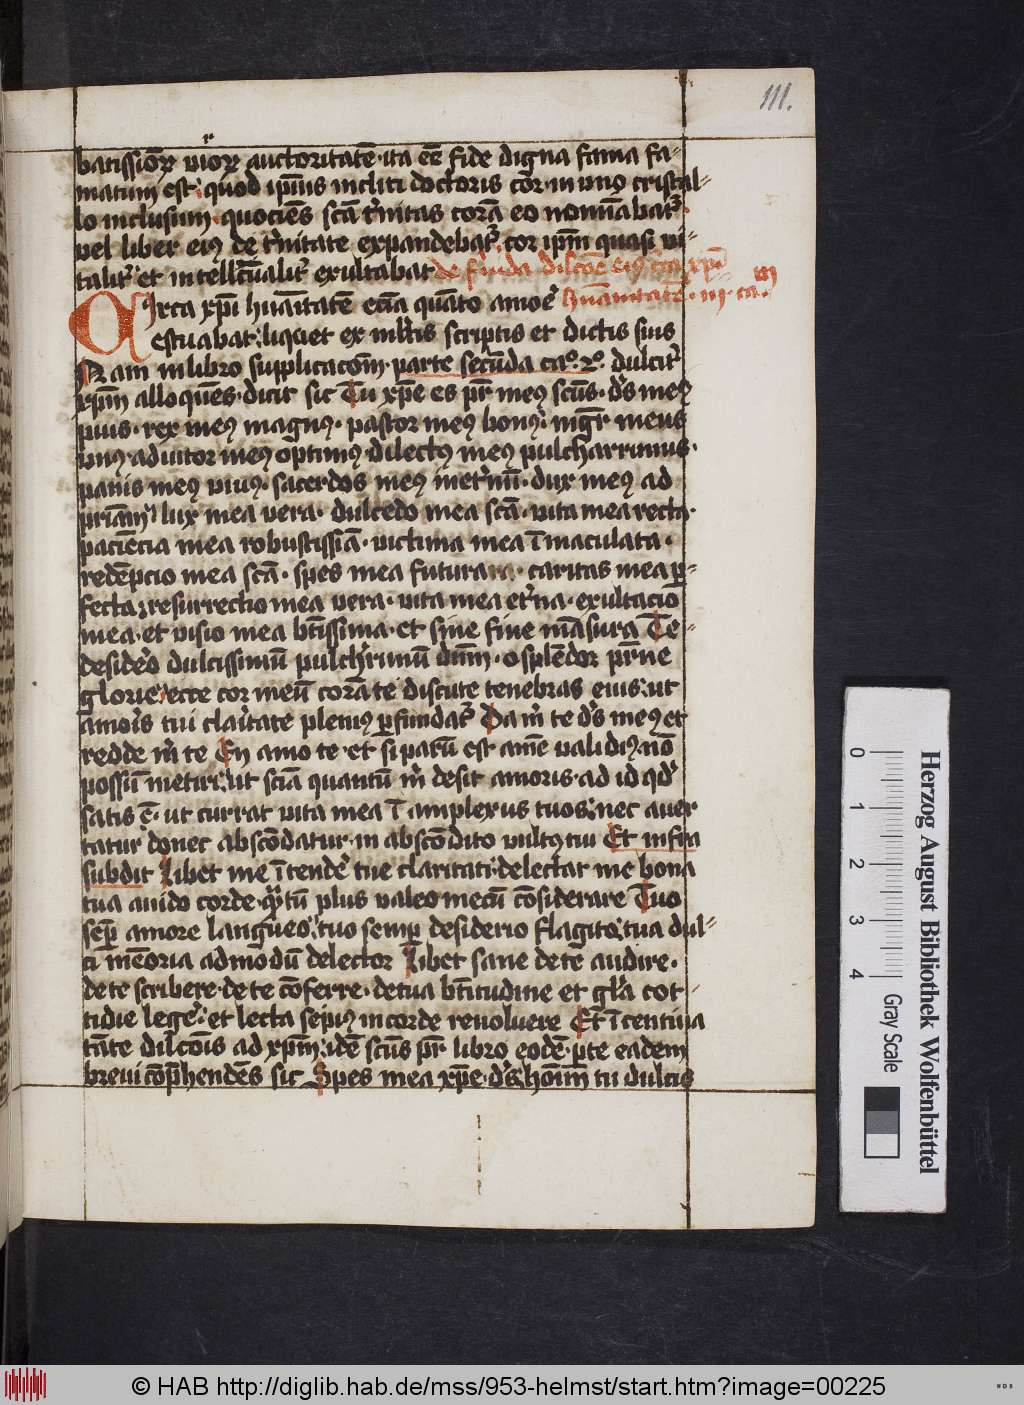 111.
batissiorꝝ viorꝝ auctoritatē · ita eē fide digna fama fa⸗
matum est · quod ip̄ius incliti doctoris cor · in vnꝰ cristal⸗
lo inclusum · quociēs scā t'nitas corā eo nomīabat'
vel liber eiꝰ de t'nitate expandebat' · cor ip̄m quasi vi⸗
talit' et intellectualit' exultabat
de dilcōe eiꝰ xp̄i
hūanitatē · iii · ca.m
Circa xp̄i hūanitatē eciā quāto amoē
estuabat · liquet ex mltis scriptis et dictis suis
Nam in libro supplicacōm · parte secūda ca°. 2°. dulcit'
xp̄m alloquēs · dicit sic Tu xp̄e es pr̄ meꝰ scūs · ds̄ meꝰ
pius · rex meꝰ magnꝰ · pastor meꝰ bonꝰ · mgr̄ meus
vnꝰ · adiutor meꝰ optimꝰ · dilectꝰ meꝰ pulcharrimus ·
panis meꝰ viuꝰ · sacerdos meꝰ inet'nū · dux meꝰ ad
pr̄iam · lux mea vera · dulcedo mea scā · vita mea recta ·
paciēcia mea robustissiā · victima mea īmaculata ·
redēpcio mea scā · spes mea futura · caritas mea ꝑ⸗
fecta resurrectio mea vera · vita mea et'na · exultacio
mea · et visio mea bt̄issima · et sine fine māsura Te⸗
desidero dulcissimū pulcherrimū dn̄m · o splēdor pr̄ne
glorie · ecce cor meū corā te discute tenebras eius · ut
amoris tui claritate plenius ꝑfundat' Da m̄ te ds̄ meꝰ et
redde m̄ te En amo te · et si parū est amē validiꝰ nō
possū metiri · ut sciā quantū m̄ desit amoris · ad id qd̄
satis ē · ut currat vita mea ī amplexus tuos · nec auer
tatur donec abscōdatur · in abscōdito vultꝰ tui Et infra
subdit Libet me ītendē tue claritati · delectat me bona
tua auido corde · q̄ntū plus valeo mecū cōsiderare Tuo
sep̄ amore langueo · tuo semꝑ desiderio flagito · tua dul⸗
ci mēoria admodū delector Libet sane de te audire ·
de te scribere · de te cōferre · de tua bt̄itudine et gl̄a cot⸗
tidie legē · et lecta sepiꝰ in corde reuoluere Et ī centiua
tāte dilcōis ad xp̄m · idē scūs pr̄ libro eodē · ꝑte eadem
breui cōp̄hendēs sic Spes mea xp̄e · ds̄ & hoīm tu dulcis
Herzog August Bibliothek Wolfenbüttel
0 1 2 3 4
Gray Scale
© HAB http://diglib.hab.de/mss/953-helmst/start.htm?image=00225